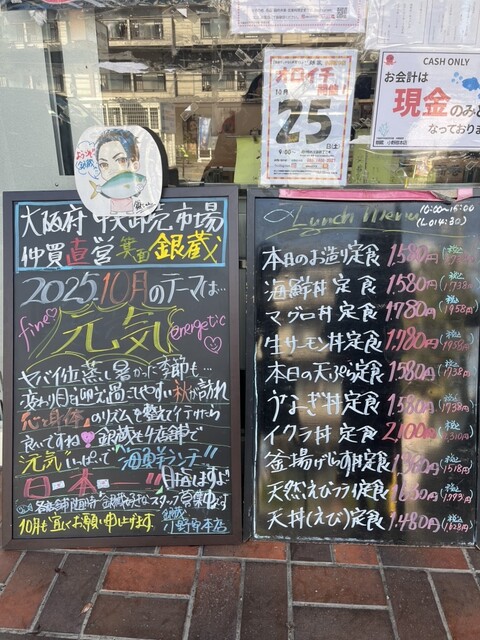 CASH ONLY
お会計は
現金のみと
なっておりま
オロイチ
開催!
10月
25
(土)
大阪府中央卸売市場
仲買直営 箕面 銀蔵
2025.10月のテーマは…
fine
元気
energetic
ヤバイ位蒸し暑かった季節も…
秋が訪れ
心と身体のリズムを整えて行けたら
良いですね 銀蔵は4店舗で
元気いっぱいで "海鮮丼ランチ"
日本一
10月も宜しくお願い申し上げます
銀蔵
小野原本店
Lunch Menu
10:00〜15:00
(L.O14:30)
本日のお造り定食 1.580円
海鮮丼定食 1580円(税込1738円)
マグロ丼定食 1780円(税込1958円)
生サーモン丼定食 1.780円(税込1958円)
本日の天ぷら定食 1.580円(税込1738円)
うなぎ丼定食 1.580円(税込1738円)
イクラ丼定食 2.100円(税込2,310円)
釜揚げしらす丼定食 1.380円(税込1518円)
天然えびフライ定食 1.630円(税込1.793円)
天丼(えび)定食 1.480円(税込1628円)